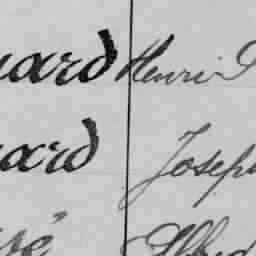 uard Henri
uard Joseph
vé Alfred